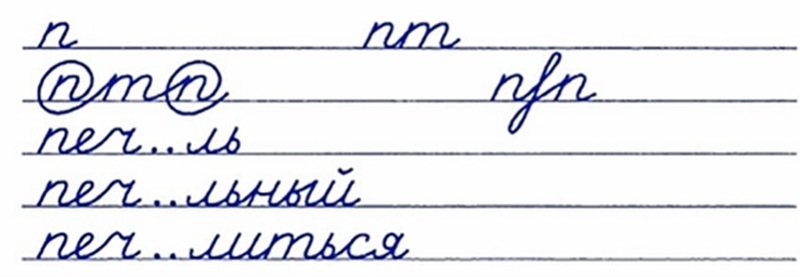 п пт
птп
печ..ль
печ..льный
печ..литься